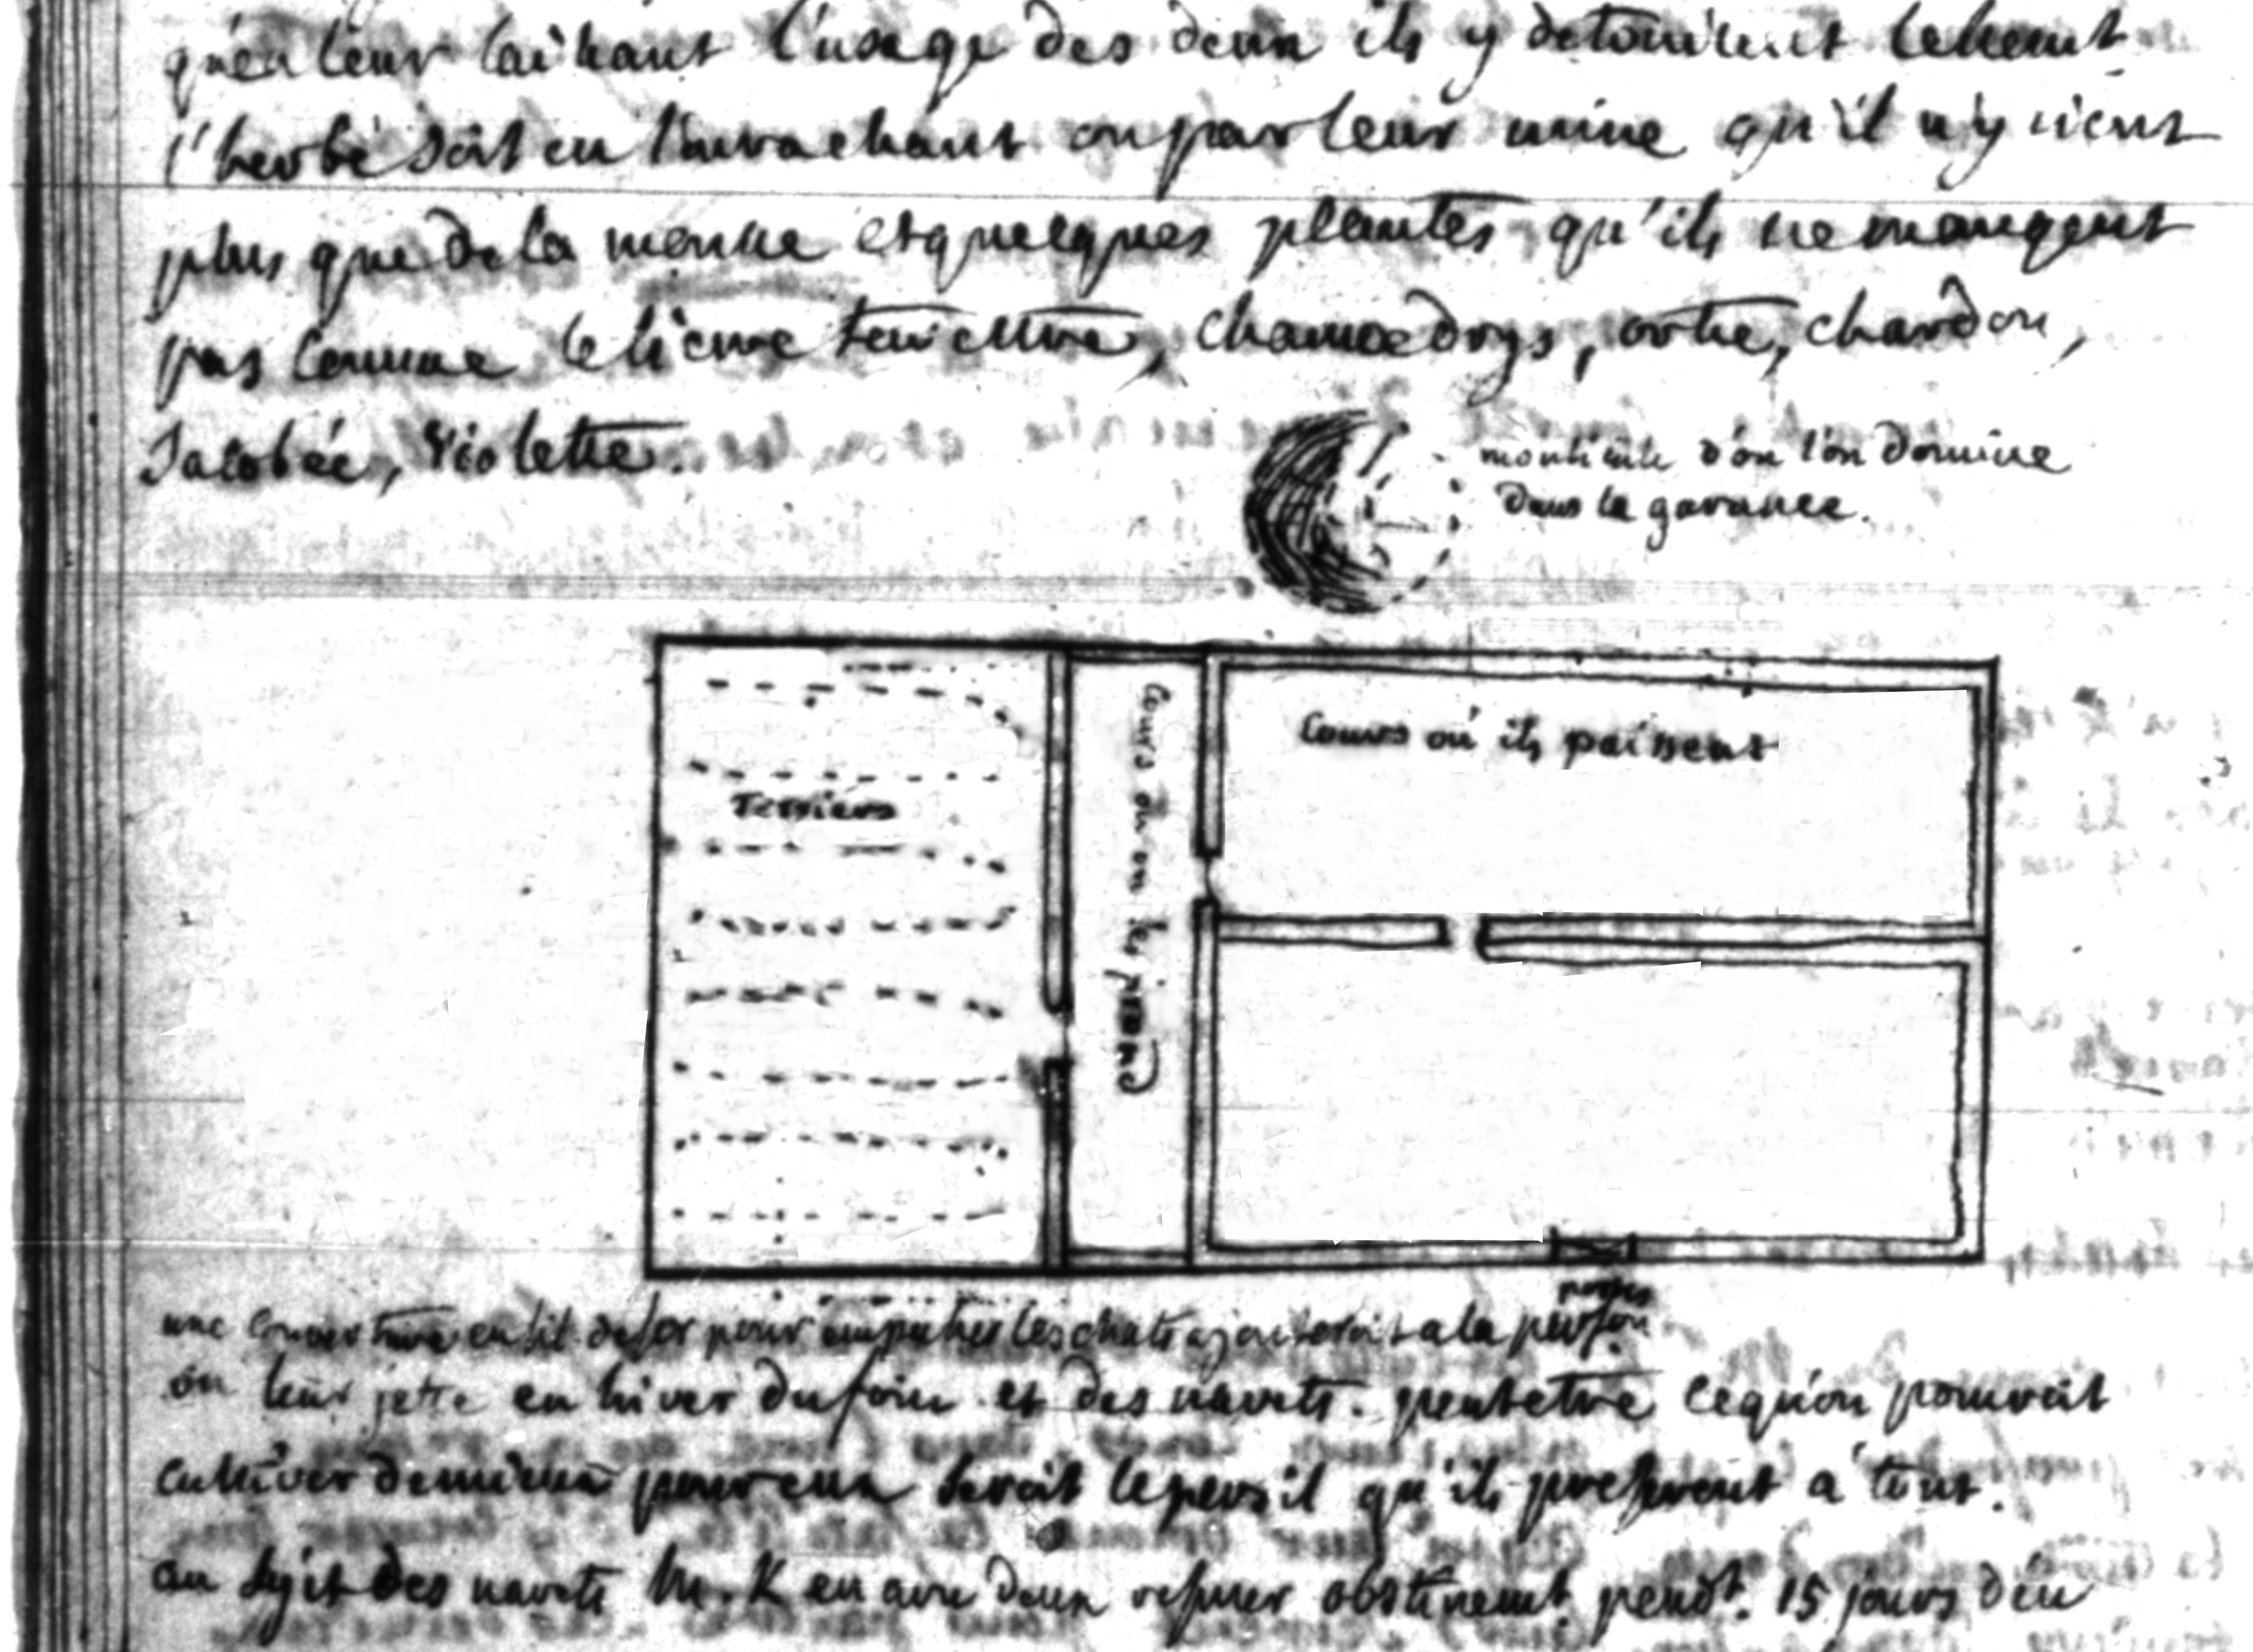 qu'en leur laissant l'usage des deux ils y detruisent tellement
l'herbe soit en l'arrachant ou par leur urine qu'il n'y vient
plus que de la mousse et quelques plantes qu'ils ne mangent
pas comme le lierre terrestre, chamœdrys, ortie, chardon,
Jacobée, violette.
monticule d'ou l'on domine
dans la garanne.
Cours où ils paissent
Cours ou on les prend
Terriers
une couverture en fil de fer pour empecher les chats ajouteroit a la perfon.
on leur jette en hiver du foin et des navets. peutetre ce qu'on pourroit
cultiver de mieux pour eux seroit le persil qu'ils preferent a tout.
au sujet des navets M. K en a vu deux refuser obstinemt. pendt. 15 jours d'en